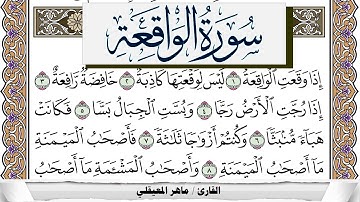 سُورَةُ الوَاقِعَةِ
إِذَا وَقَعَتِ ٱلْوَاقِعَةُ ١ لَيْسَ لِوَقْعَتِهَا كَاذِبَةٌ ٢ خَافِضَةٌ رَّافِعَةٌ ٣
إِذَا رُجَّتِ ٱلْأَرْضُ رَجًّا ٤ وَبُسَّتِ ٱلْجِبَالُ بَسًّا ٥ فَكَانَتْ
هَبَآءً مُّنۢبَثًّا ٦ وَكُنتُمْ أَزْوَٰجًا ثَلَٰثَةً ٧ فَأَصْحَٰبُ ٱلْمَيْمَنَةِ
مَآ أَصْحَٰبُ ٱلْمَيْمَنَةِ ٨ وَأَصْحَٰبُ ٱلْمَشْـَٔمَةِ مَآ أَصْحَٰبُ
القارئ / ماهر المعيقلي